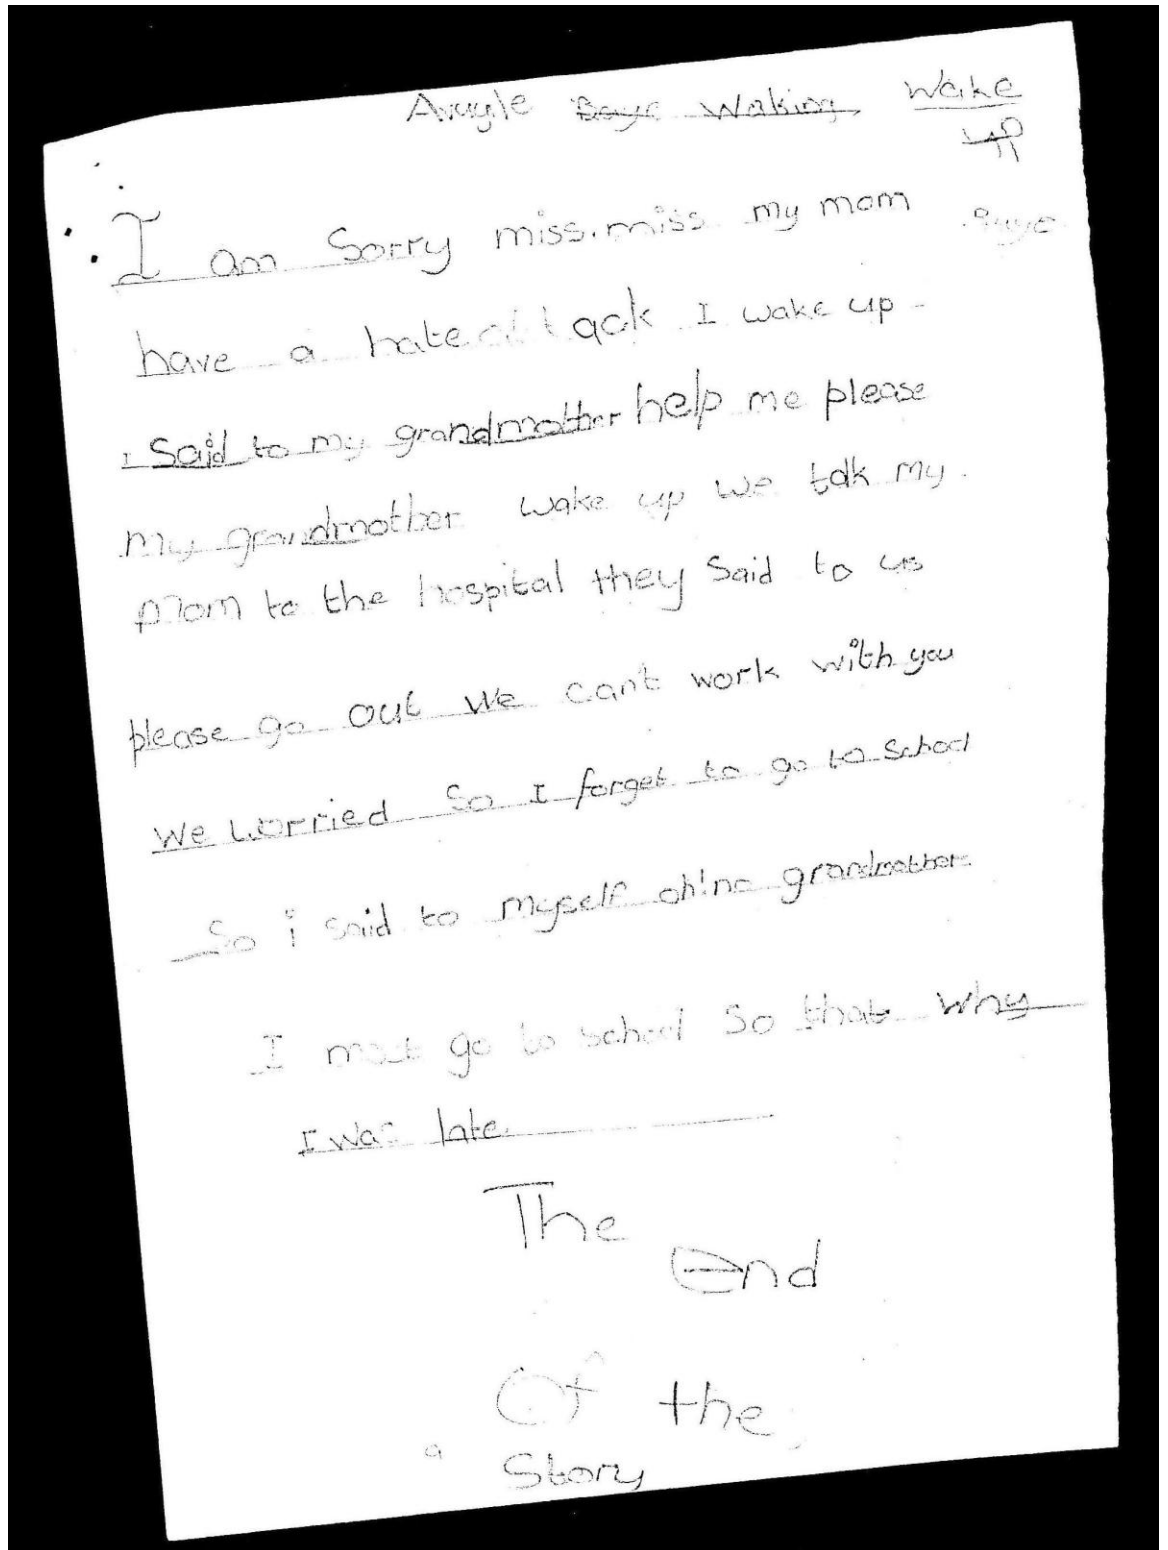 Avuyle Waking, Wake
up
I am Sorry miss.miss my mom
have a hate attack I wake up
I Said to my grandmother help me please
my grandmother wake up we talk my
mom to the hospital they Said to us
please go out We can't work with you
We worried So I forget to go to School
So i said to myself oh!no grandmother
I must go to school So that why
I was late.
The
End
Of the
Story